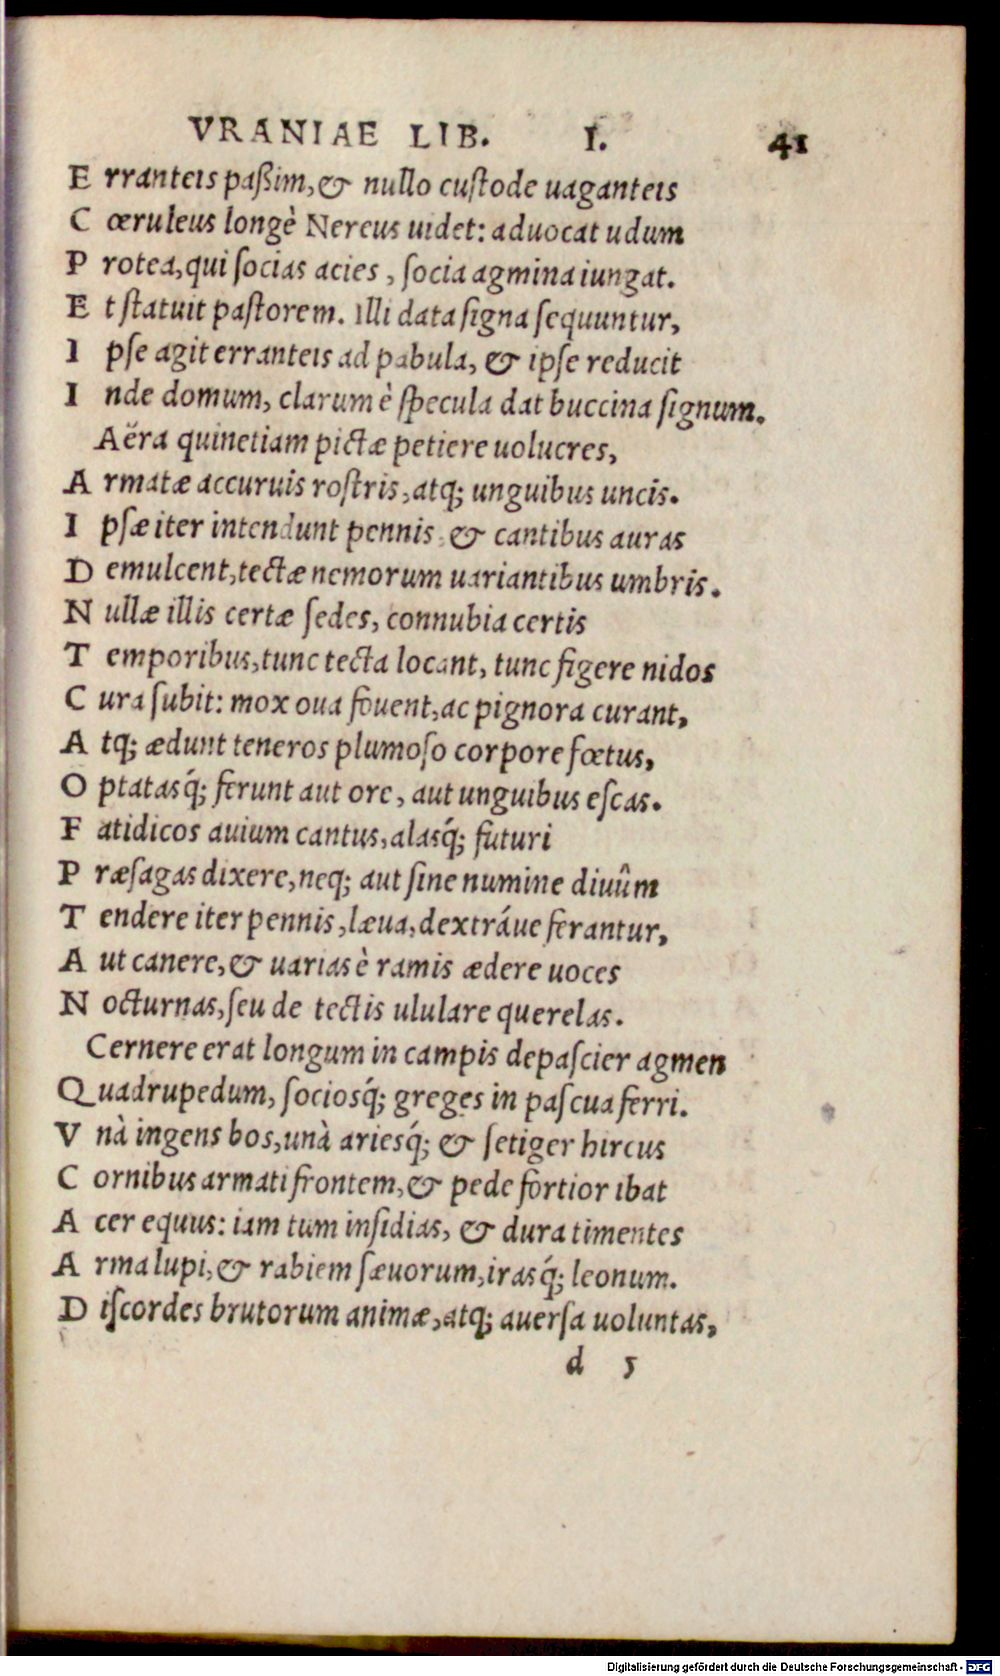 VRANIAE LIB. I. 41
E rranteis paßim, & nullo custode uaganteis
C œruleus longè Nereus uidet: aduocat udum
P rotea, qui socias acies, socia agmina iungat.
E t statuit pastorem. illi data signa sequuntur,
I pse agit erranteis ad pabula, & ipse reducit
I nde domum, clarum è specula dat buccina signum.
Aëra quinetiam pictæ petiere uolucres,
A rmatæ accuruis rostris, atq; unguibus uncis.
I psæ iter intendunt pennis, & cantibus auras
D emulcent, tectæ nemorum uariantibus umbris.
N ullæ illis certæ sedes, connubia certis
T emporibus, tunc tecta locant, tunc figere nidos
C ura subit: mox oua fouent, ac pignora curant,
A tq; ædunt teneros plumoso corpore fœtus,
O ptatasq́; ferunt aut ore, aut unguibus escas.
F atidicos auium cantus, alasq́; futuri
P ræsagas dixere, neq; aut sine numine diuûm
T endere iter pennis, læua, dextráue ferantur,
A ut canere, & uarias è ramis ædere uoces
N octurnas, seu de tectis ululare querelas.
Cernere erat longum in campis depascier agmen
Q uadrupedum, sociosq́; greges in pascua ferri.
V nà ingens bos, unà ariesq́; & setiger hircus
C ornibus armati frontem, & pede fortior ibat
A cer equus: iam tum insidias, & dura timentes
A rma lupi, & rabiem sæuorum, irasq́; leonum.
D iscordes brutorum animæ, atq; auersa uoluntas,
d 5
Digitalisierung gefördert durch die Deutsche Forschungsgemeinschaft - DFG